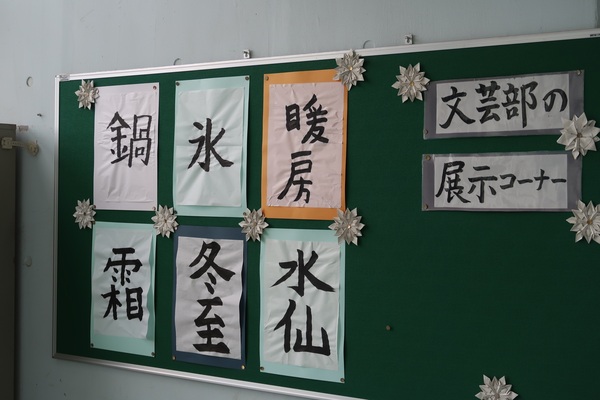 文芸部の
展示コーナー
暖房
氷
鍋
水仙
冬至
霜